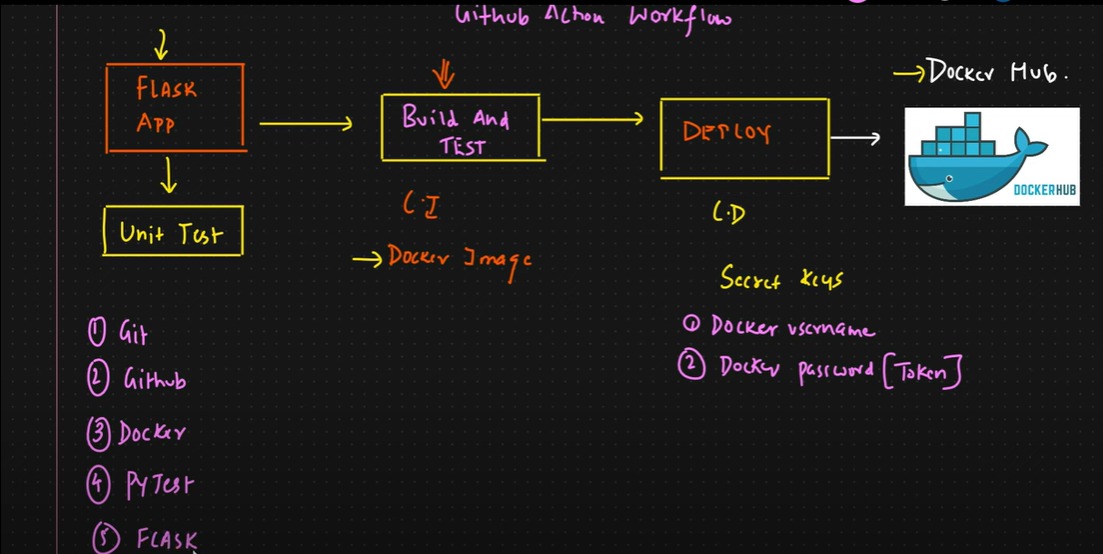 Github Action Workflow
FLASK
APP
Unit Test
Build And
TEST
C.I
→ Docker Image
DEPLOY
C.D
→ Docker Hub.
DOCKERHUB
Secret Keys
① Docker username
② Docker password [Token]
① Git
② Github
③ Docker
④ PyTest
⑤ FLASK